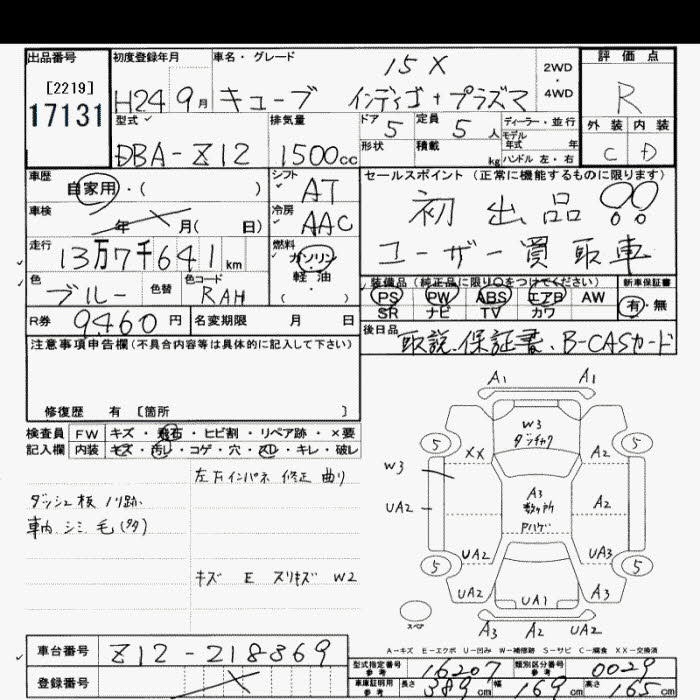 出品番号
[2219]
17131
初度登録年月
H24 9月
車名・グレード
15X
キューブ インディゴ+プラズマ
2WD
・
4WD
評価点
R
外装 内装
C D
型式
DBA-Z12
排気量
1500cc
ドア
5
定員
5人
形状
積載
kg
ディーラー・並行
モデル
年式 年
ハンドル 左・右
車歴
自家用・( )
シフト
AT
車検
年 月( 日)
冷房
AAC
走行
13万7千641km
燃料
ガソリン
軽・油
( )
色
ブルー
色替
色コード
RAH
R券
9460円
名変期限 月 日
セールスポイント(正常に機能するものに限ります)
初出品
ユーザー買取車
装備品(純正品に限り○をつけてください)
PS PW ABS エアB AW
SR ナビ TV カワ
新車保証書
有・無
後日品
取説、保証書、B-CASカード
注意事項申告欄(不具合内容等は具体的に記入して下さい)
修復歴 有 [箇所 ]
検査員
記入欄
FW キズ・飛石・ヒビ割・リペア跡・×要
内装 キズ・汚レ・コゲ・穴・スレ・キレ・破レ
左右インパネ 修正 曲り
ダッシュ板 ノリ跡
車内 シミ 毛(多)
キズ E スリキズ W2
A1 A1
W3
ダッチャク
5 5
XX A2
W3
UA2
A3
数ヶ所
Pハゲ
A2
UA2 UA3
5 5
UA2 UA1 A3
スペア
A3 A2 UA2
A-キズ E-エクボ U-凹み W-補修跡 S-サビ C-腐食 XX-交換済
車台番号
Z12-218369
登録番号
型式指定番号
参考
16207
類別区分番号
参考
0029
車庫証明用
参考
長さ 389cm 幅 169cm 高さ 165cm